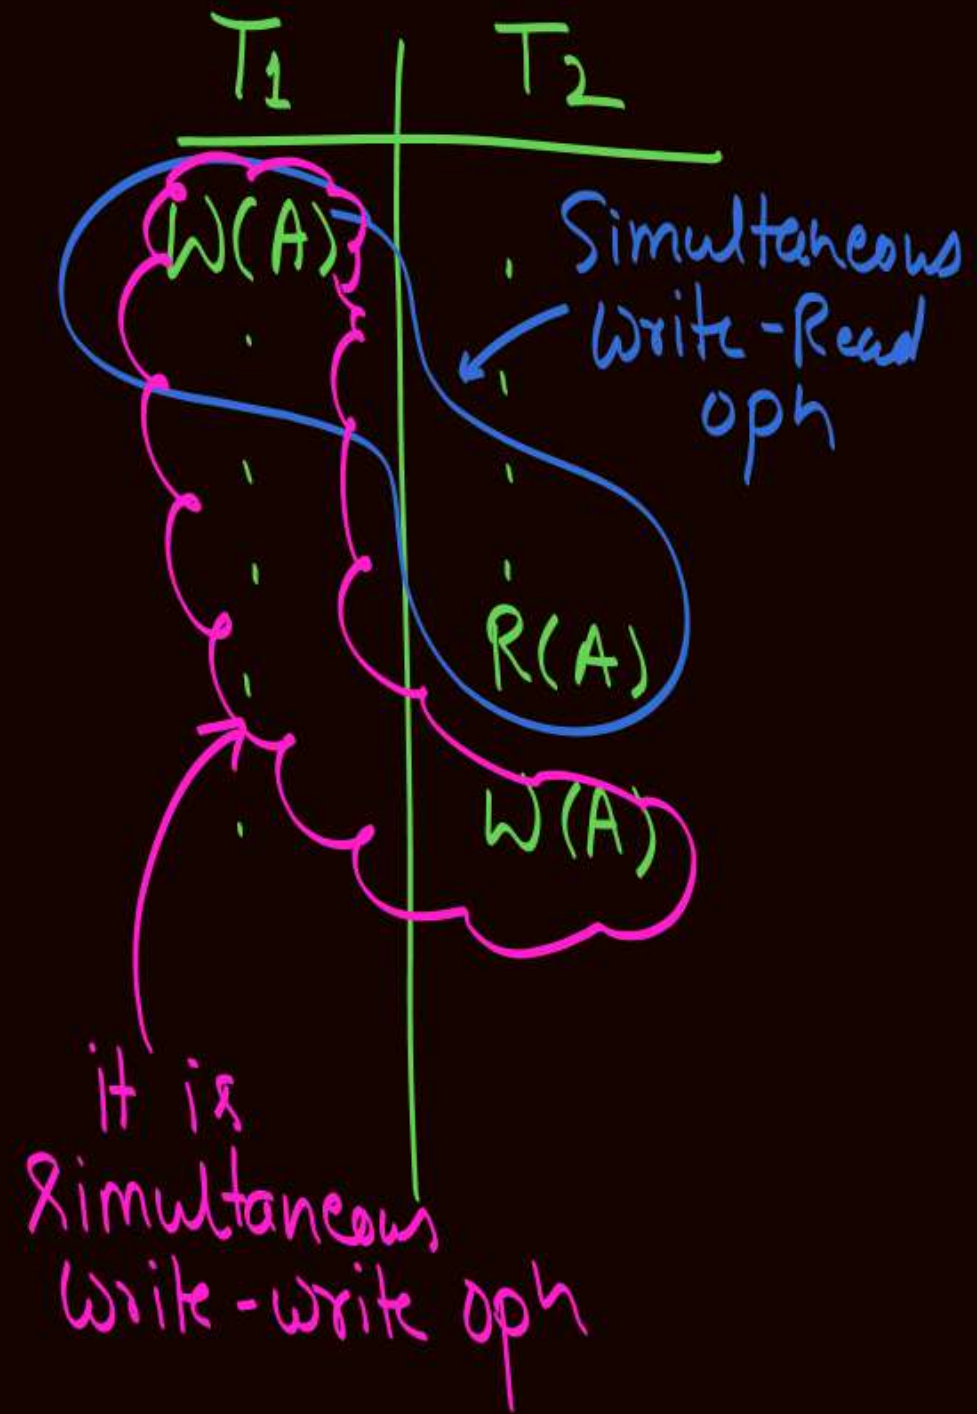 T1 T2
W(A)
Simultaneous
Write-Read
opn
R(A)
W(A)
it is
Simultaneous
Write-write opn